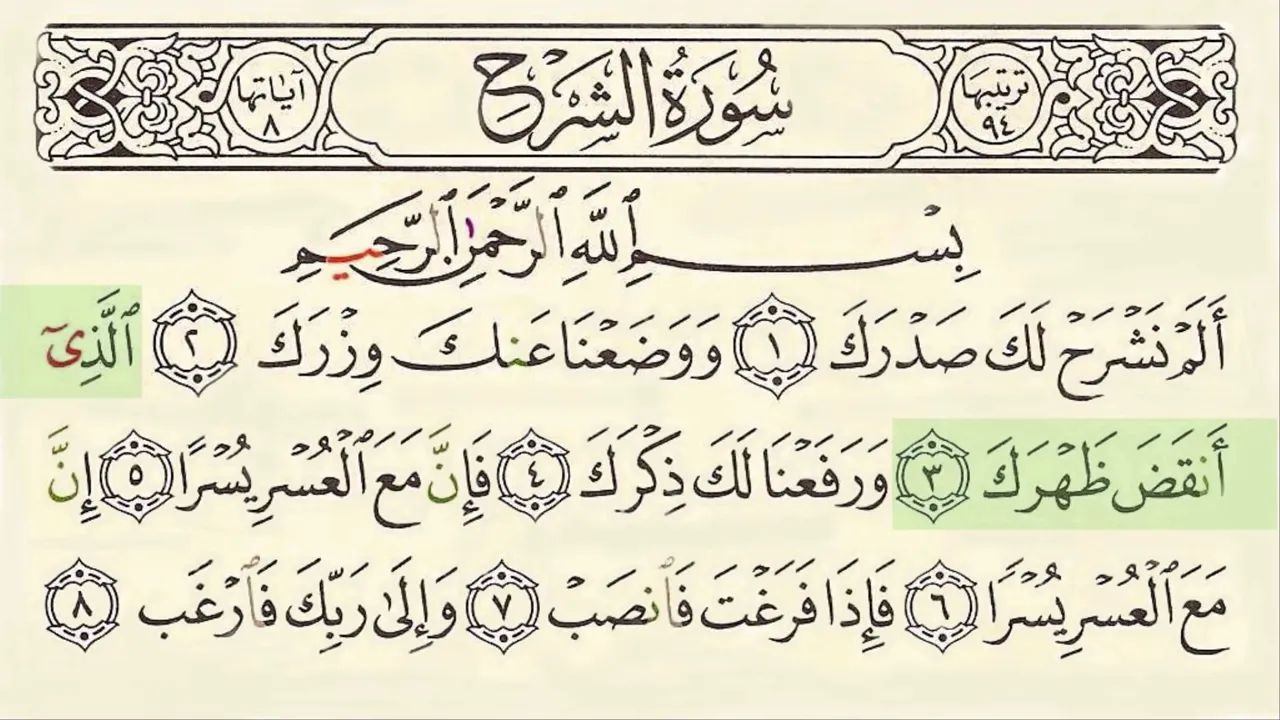 ترتيبها ٩٤
سُورَةُ الشَّرْحِ
آيَاتها ٨
بِسْمِ ٱللَّهِ ٱلرَّحْمَٰنِ ٱلرَّحِيمِ
أَلَمْ نَشْرَحْ لَكَ صَدْرَكَ ١ وَوَضَعْنَا عَنكَ وِزْرَكَ ٢ ٱلَّذِىٓ
أَنقَضَ ظَهْرَكَ ٣ وَرَفَعْنَا لَكَ ذِكْرَكَ ٤ فَإِنَّ مَعَ ٱلْعُسْرِ يُسْرًا ٥ إِنَّ
مَعَ ٱلْعُسْرِ يُسْرًا ٦ فَإِذَا فَرَغْتَ فَٱنصَبْ ٧ وَإِلَىٰ رَبِّكَ فَٱرْغَب ٨